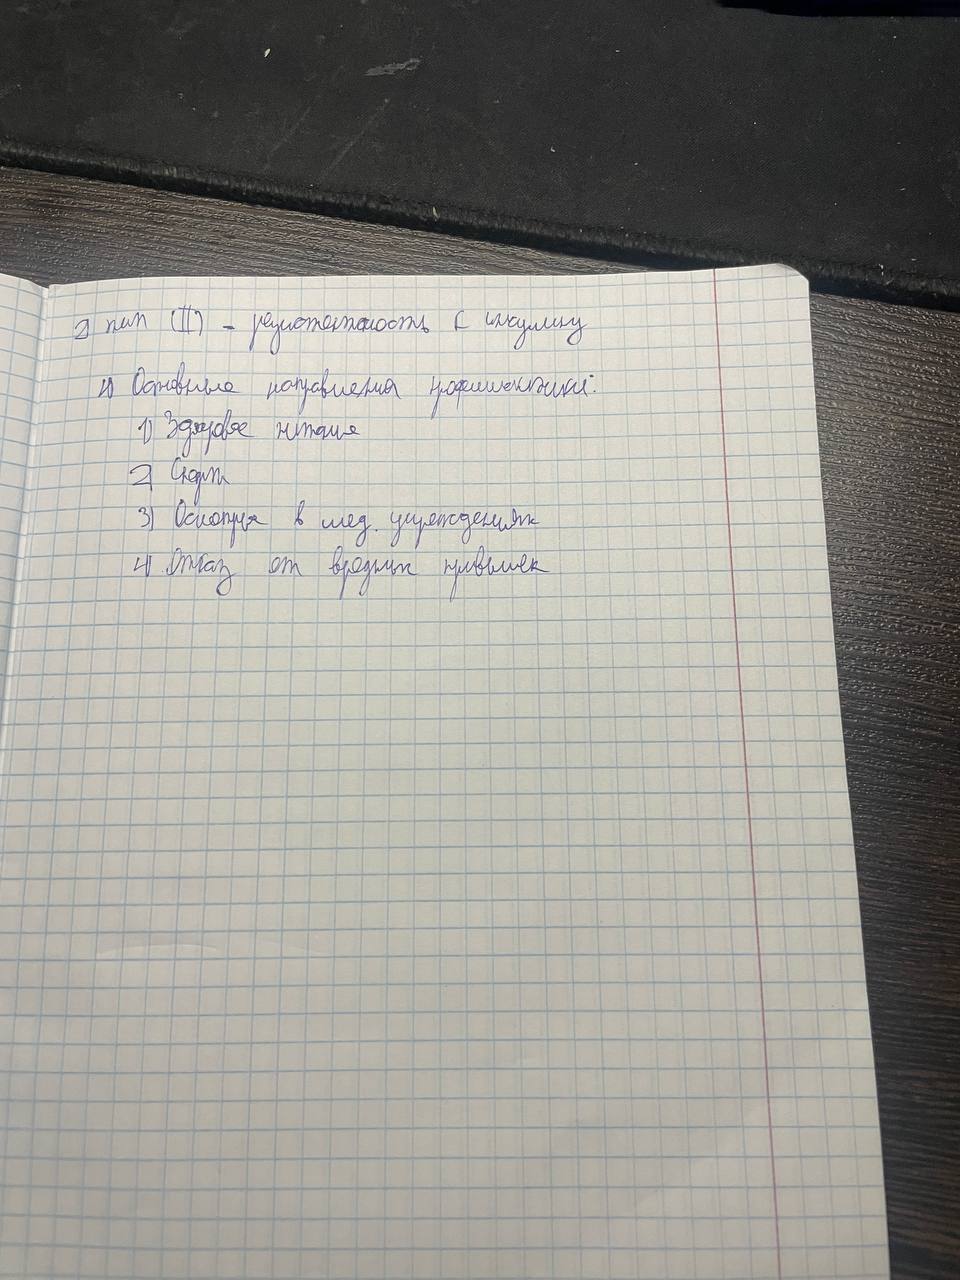 2 тип (II) - резистентность к инсулину
4) Основные направления профилактики:
1) Здоровое питание
2) Спорт
3) Осмотры в мед. учреждениях
4) Отказ от вредных привычек